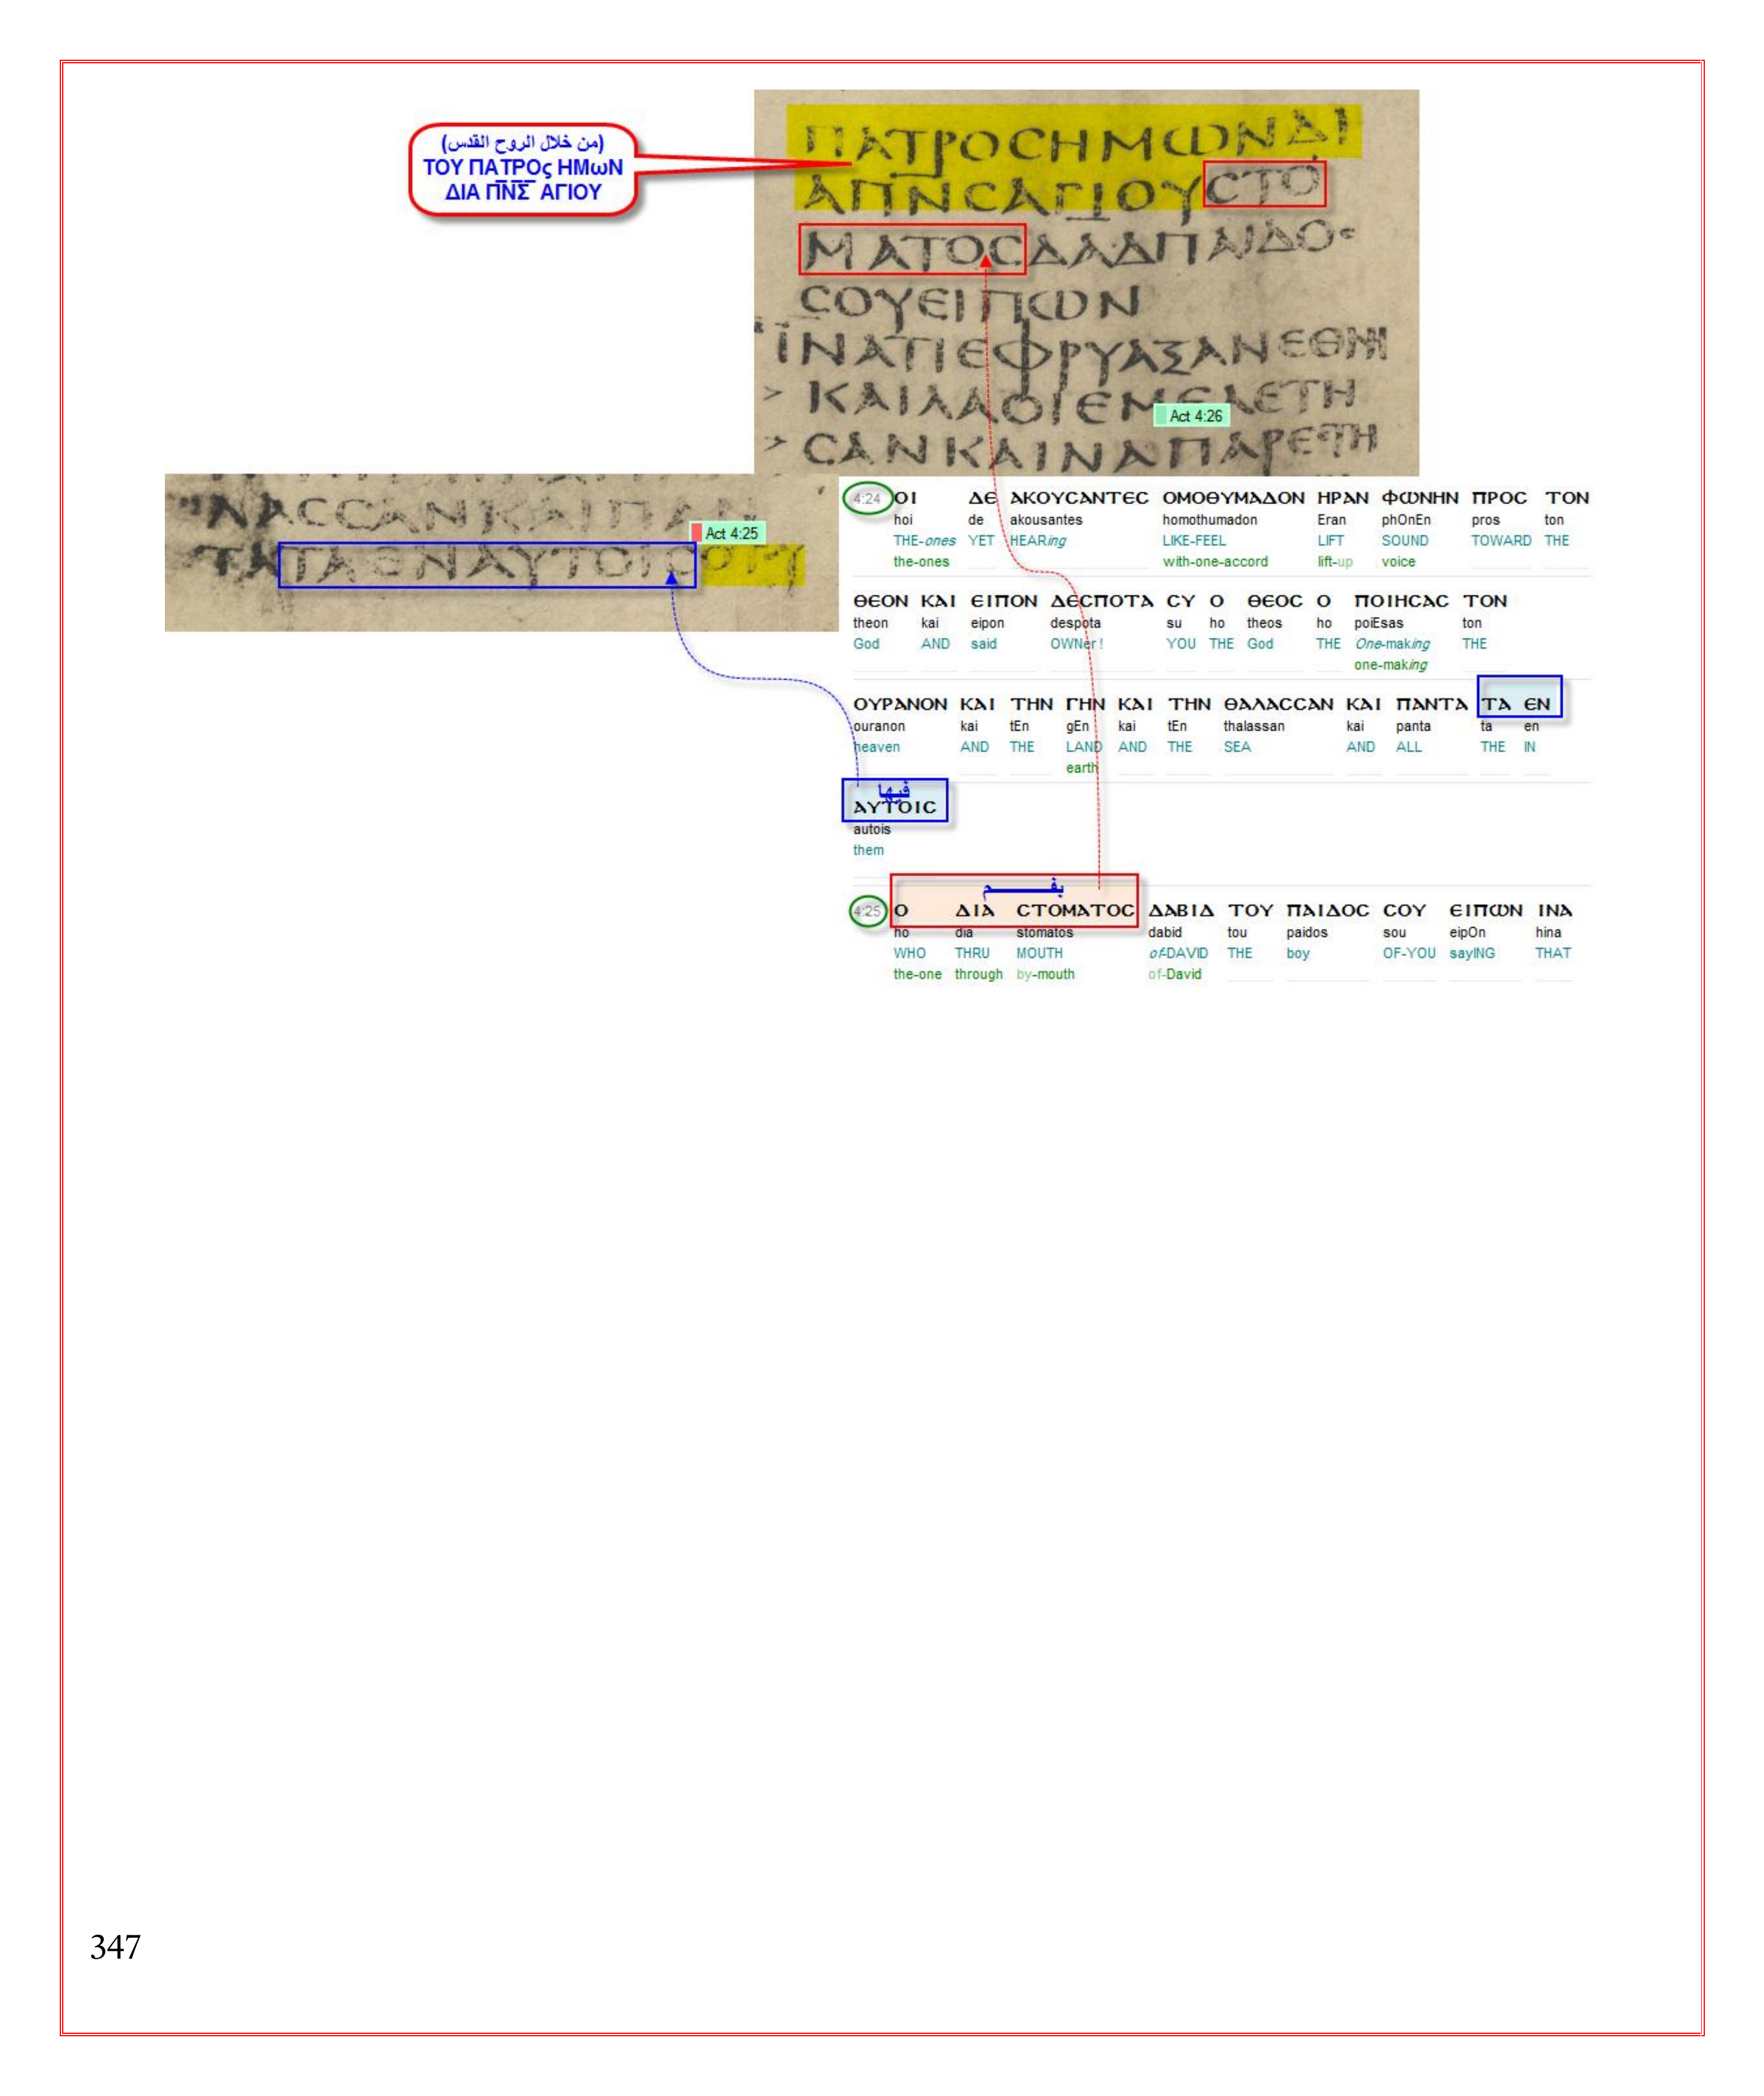 (من خلال الروح القدس)
ΤΟΥ ΠΑΤΡΟς ΗΜωΝ
ΔΙΑ Π̅Ν̅Σ̅ ΑΓΙΟΥ
ΠΑΤΡΟϹΗΜΩΝΔΙ
ΑΠΝϹΑΓΙΟΥϹΤΟ
ΜΑΤΟϹΔΑΔΠΑΙΔΟϹ
ϹΟΥΕΙΠΩΝ
ΪΝΑΤΙΕΦΡΥΑΞΑΝΕΘΝΗ
> ΚΑΙΛΑΟΙΕΜΕΛΕΤΗ
Act 4:26
> ϹΑΝΚΑΙΝΑΠΑΡΕϹΤΗ
ΛΑϹϹΑΝΚΑΙΠΑΝ
Act 4:25
ΤΑΤΑΕΝΑΥΤΟΙϹΟΤΥ
4:24 ΟΙ ΔΕ ΑΚΟΥϹΑΝΤΕϹ ΟΜΟΘΥΜΑΔΟΝ ΗΡΑΝ ΦΩΝΗΝ ΠΡΟϹ ΤΟΝ
hoi de akousantes homothumadon Eran phOnEn pros ton
THE-ones YET HEARing LIKE-FEEL LIFT SOUND TOWARD THE
the-ones with-one-accord lift-up voice
ΘΕΟΝ ΚΑΙ ΕΙΠΟΝ ΔΕϹΠΟΤΑ ϹΥ Ο ΘΕΟϹ Ο ΠΟΙΗϹΑϹ ΤΟΝ
theon kai eipon despota su ho theos ho poiEsas ton
God AND said OWNer ! YOU THE God THE One-making THE
one-making
ΟΥΡΑΝΟΝ ΚΑΙ ΤΗΝ ΓΗΝ ΚΑΙ ΤΗΝ ΘΑΛΑϹϹΑΝ ΚΑΙ ΠΑΝΤΑ ΤΑ ΕΝ
ouranon kai tEn gEn kai tEn thalassan kai panta ta en
heaven AND THE LAND AND THE SEA AND ALL THE IN
earth
فيها
ΑΥΤΟΙϹ
autois
them
بفــــــــم
4:25 Ο ΔΙΑ ϹΤΟΜΑΤΟϹ ΔΑΒΙΔ ΤΟΥ ΠΑΙΔΟϹ ϹΟΥ ΕΙΠΩΝ ΙΝΑ
ho dia stomatos dabid tou paidos sou eipOn hina
WHO THRU MOUTH of-DAVID THE boy OF-YOU sayING THAT
the-one through by-mouth of-David
347